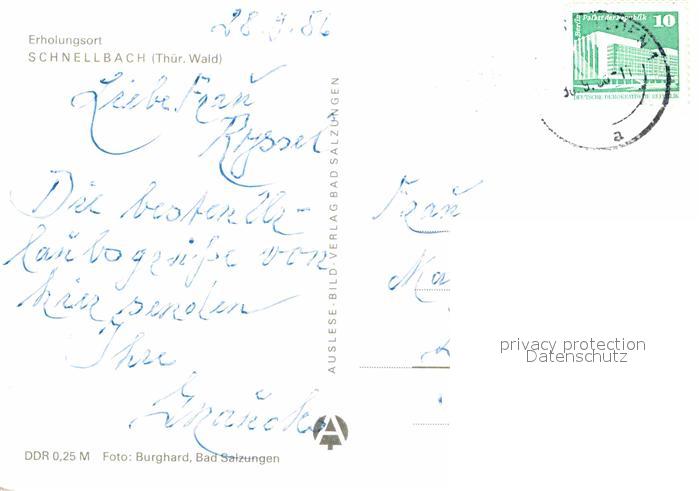 28.9.86
Erholungsort
SCHNELLBACH (Thür. Wald)
Liebe Frau
Ryssel
Die besten Ur-
laubsgrüße von
hier senden
Ihre
AUSLESE-BILD-VERLAG BAD SALZUNGEN
DDR 0,25 M Foto: Burghard, Bad Salzungen
Berlin Palast der Republik 10
DEUTSCHE DEMOKRATISCHE REPUBLIK
a
Frau
privacy protection
Datenschutz